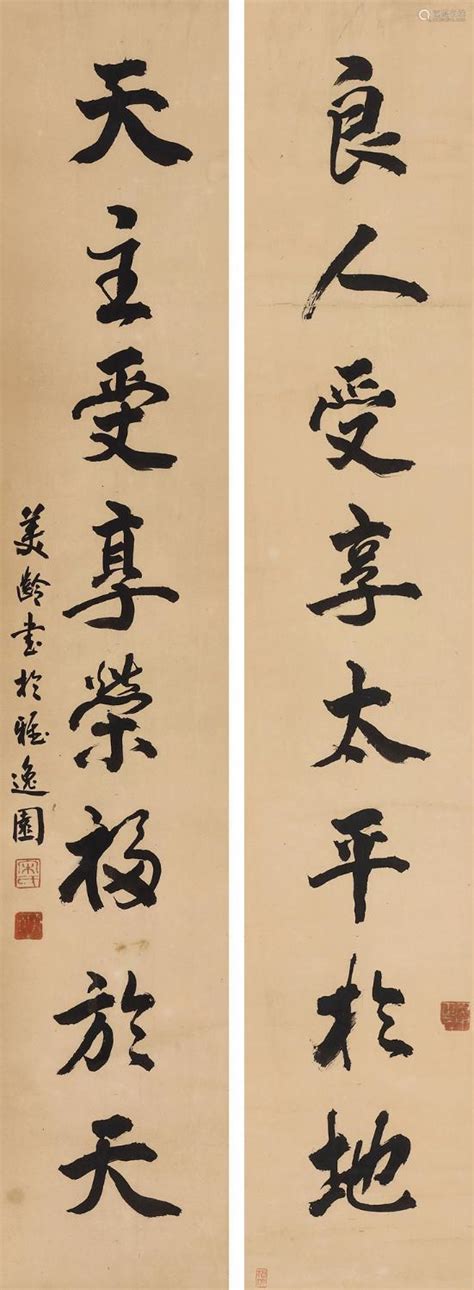 良人受享太平於地
天主受享榮福於天
美齡書於雅逸園